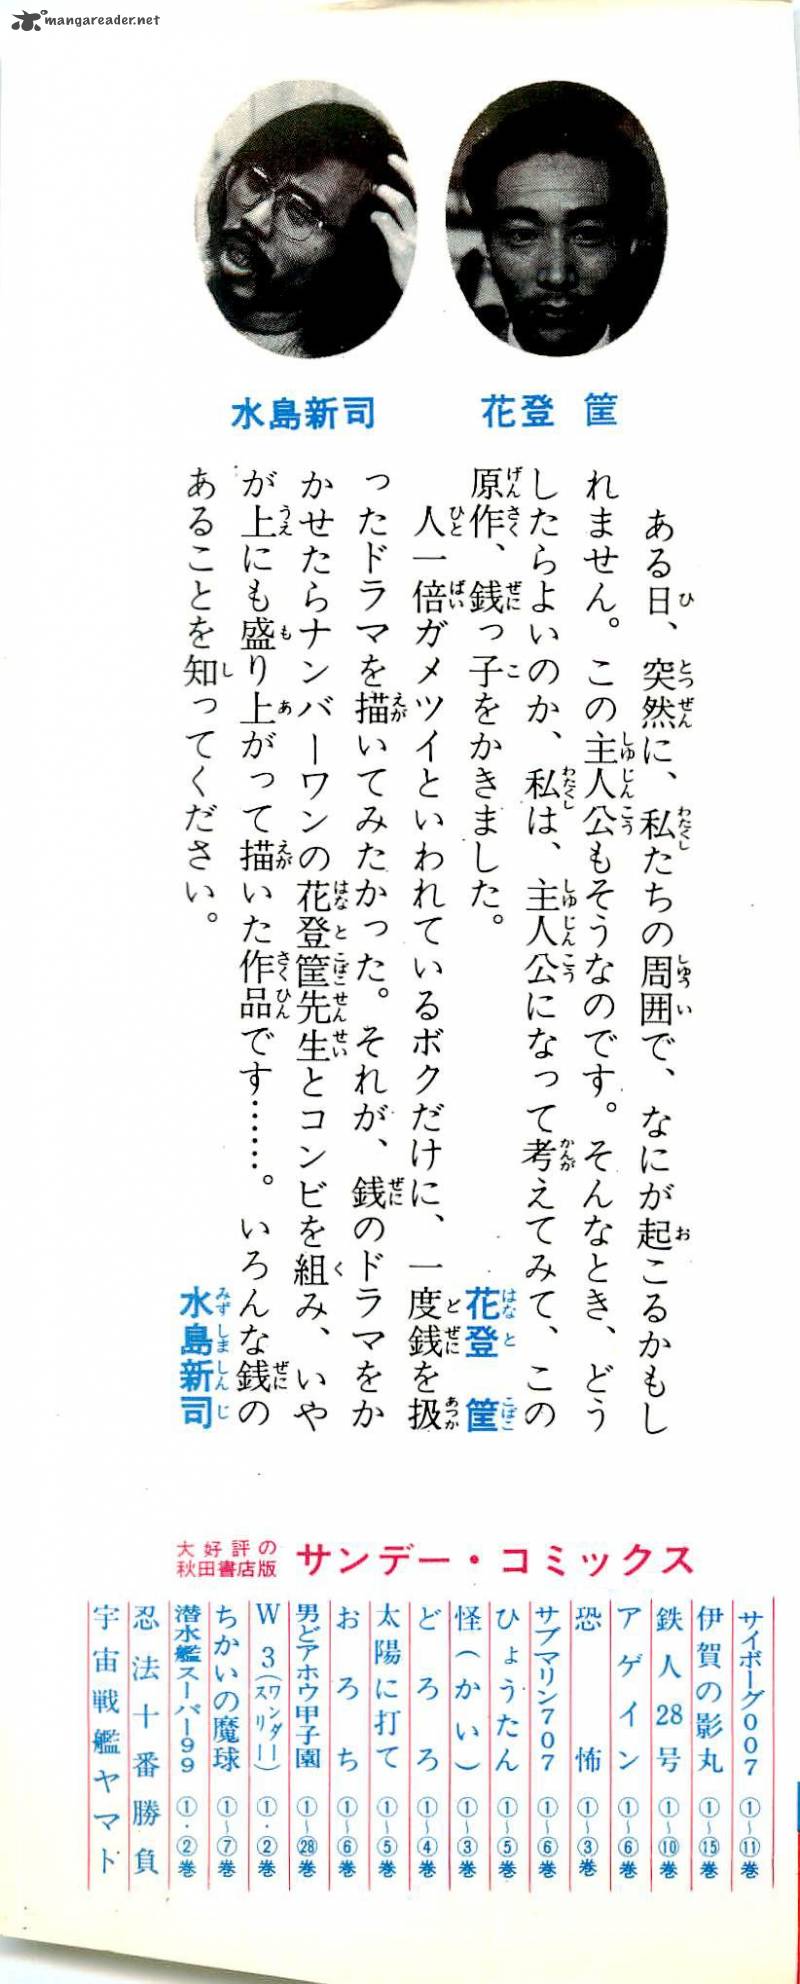 mangareader.net
花登 筺
水島新司
ある日、突然に、私たちの周囲で、なにが起こるかもし
れません。この主人公もそうなのです。そんなとき、どう
したらよいのか、私は、主人公になって考えてみて、この
原作、銭っ子をかきました。
花登 筺
人一倍ガメツイといわれているボクだけに、一度銭を扱
ったドラマを描いてみたかった。それが、銭のドラマをか
かせたらナンバーワンの花登筺先生とコンビを組み、いや
が上にも盛り上がって描いた作品です……。いろんな銭の
あることを知ってください。
水島新司
大好評の
秋田書店版
サンデー・コミックス
サイボーグ007 ①〜⑪巻
伊賀の影丸 ①〜⑮巻
鉄人28号 ①〜⑩巻
アゲイン ①〜⑥巻
恐怖 ①〜③巻
サブマリン707 ①〜⑥巻
ひょうたん ①〜⑤巻
怪(かい) ①〜③巻
どろろ ①〜④巻
太陽に打て ①〜⑤巻
おろち ①〜⑥巻
男どアホウ甲子園 ①〜㉘巻
W3(ワンダースリー) ①・②巻
ちかいの魔球 ①〜⑦巻
潜水艦スーパー99 ①・②巻
忍法十番勝負
宇宙戦艦ヤマト